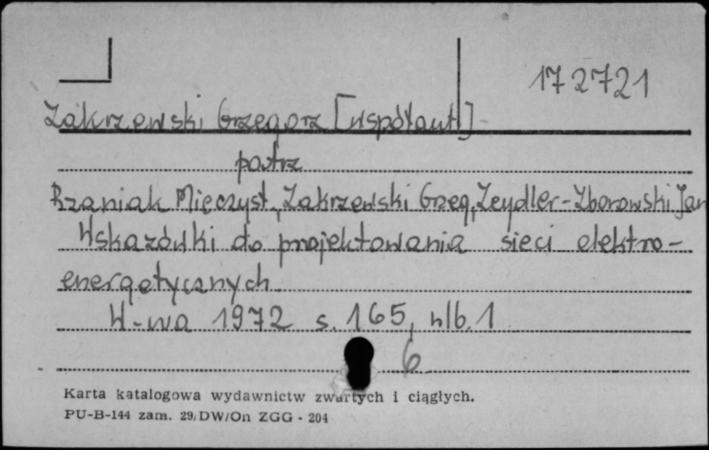 172721
Zakrzewski Grzegorz [współaut]
patrz
Rzaniak Mieczysł., Zakrzewski Grzeg., Zeydler-Zborowski Jan
Wskazówki do projektowania sieci elektro-
energetycznych
W-wa 1972 s. 165, nlb. 1
6
Karta katalogowa wydawnictw zwartych i ciągłych.
PU-B-144 zam. 29/DW/On ZGG - 204